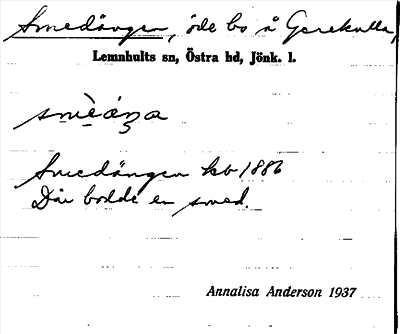 Smedängen, öde bs å Gerekulla,
Lemnhults sn, Östra hd, Jönk. l.
Smedängen kb 1886
Där bodde en smed.
Annalisa Anderson 1937